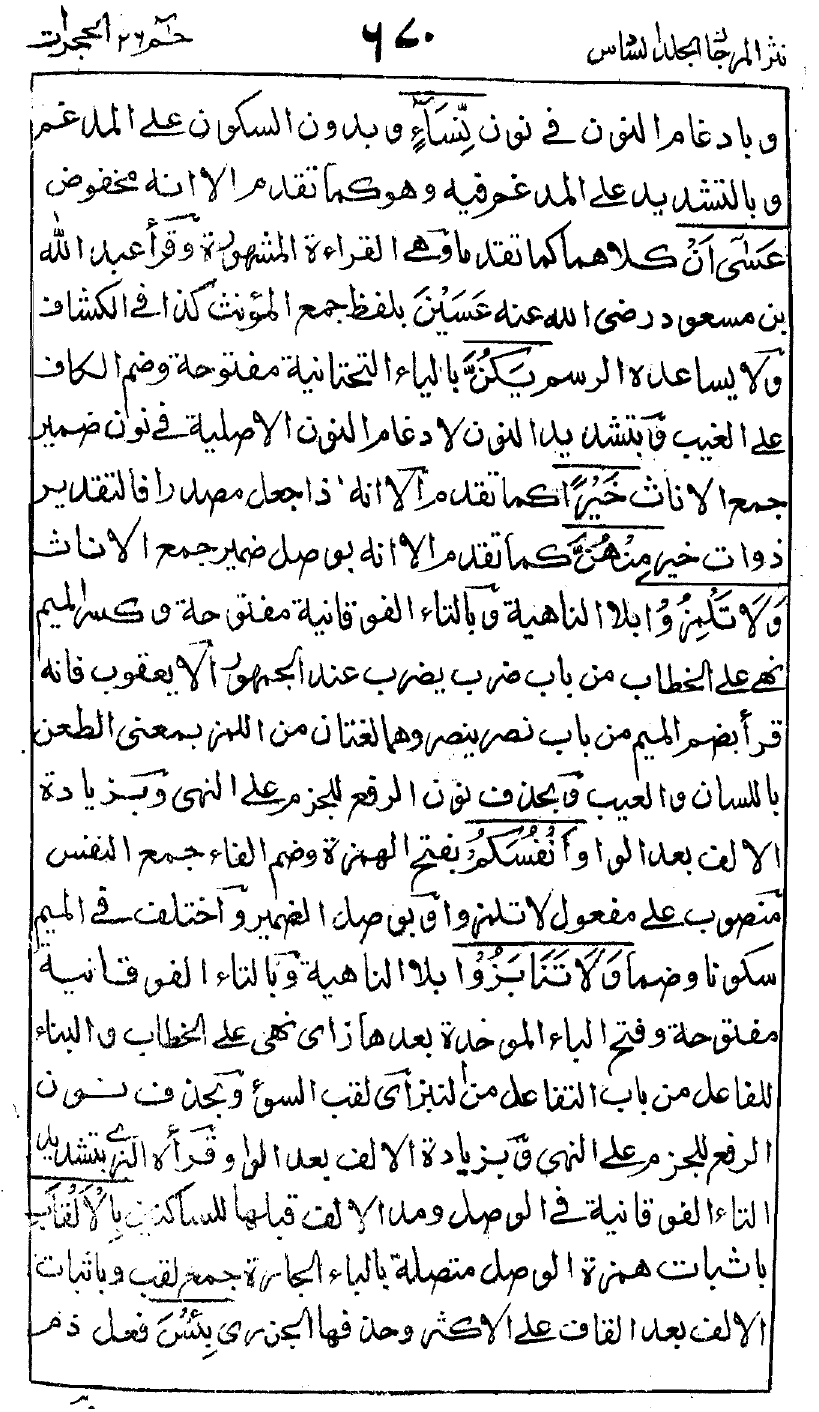 نثر المرجان المجلد السادس ٦٧٠ حٰمٓ ٢٦ الحجرات
وبادغام النون في نون نِّسَآءٍ وبدون السكون على المدغم
وبالتشديد على المدغم فيه وهو كما تقدم الا انه مخفوض
عَسٰٓى اَنْ كلاهما كما تقدما وهي القراءة المشهورة وقرأ عبد الله
بن مسعود رضى الله عنه عَسَيْنَ بلفظ جمع المؤنث كذا في الكشاف
ولا يساعده الرسم يَكُنَّ بالياء التحتانية مفتوحة وضم الكاف
على الغيب وبتشديد النون لادغام النون الاصلية في نون ضمير
جمع الاناث خَيْرًا كما تقدم الا انه اذا جعل مصدرا فالتقدير
ذوات خير مِنْهُنَّ كما تقدم الا انه بوصل ضمير جمع الاناث
وَلَا تَلْمِزُوْا بلا الناهية وبالتاء الفوقانية مفتوحة وكسر الميم
نهى على الخطاب من باب ضرب يضرب عند الجمهور الا يعقوب فانه
قرأ بضم الميم من باب نصر ينصر وهما لغتان من اللمز بمعنى الطعن
باللسان والعيب وبحذف نون الرفع للجزم على النهى وبزيادة
الالف بعد الواو اَنْفُسَكُمْ بفتح الهمزة وضم الفاء جمع النفس
منصوب على مفعول لا تلمزوا وبوصل الضمير واختلف في الميم
سكونا وضما وَلَا تَنَابَزُوْا بلا الناهية وبالتاء الفوقانية
مفتوحة وفتح الباء الموحدة بعدها زاى نهى على الخطاب والبناء
للفاعل من باب التفاعل من النبز اى لقب السوء وبحذف نون
الرفع للجزم على النهى وبزيادة الالف بعد الواو وقرأه البزى بتشديد
التاء الفوقانية في الوصل ومد الالف قبلها للساكنين بِالْاَلْقَابِ
باثبات همزة الوصل متصلة بالباء الجارة جمع لقب وباثبات
الالف بعد القاف على الاكثر وحذفها الجزرى بِئْسَ فعل ذم